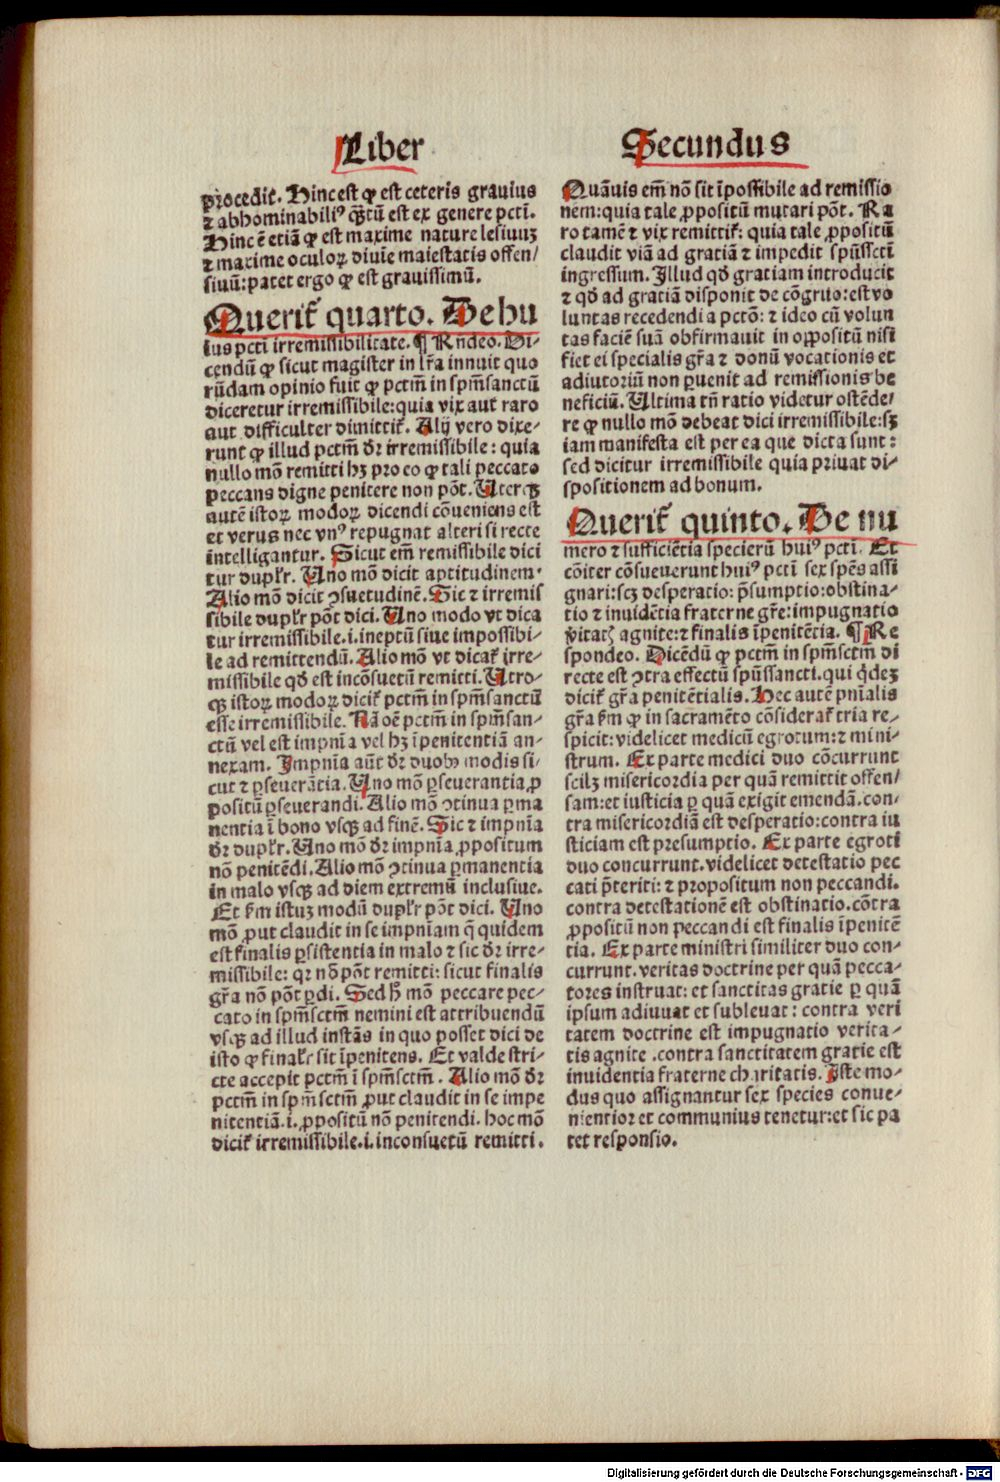 Liber
Secundus
procedit. Hinc est qꝙ est ceteris grauius
⁊ abhominabiliꝰ quātū est ex genere pctī.
Hinc ē etiā ꝙ est maxime nature lesiuuꝫ
⁊ maxime oculoꝝ diuīe maiestatis offen/
siuū: patet ergo ꝙ est grauissimū.
Querit᷑ quarto. De hu
ius pctī irremissibilitate. ¶ Rn̄deo. Di-
cendū ꝙ sicut magister in lr̄a innuit quo
rūdam opinio fuit ꝙ pctm̄ in spm̄sanctū
diceretur irremissibile: quia vix aut raro
aut difficulter dimittit᷑. Alij vero dixe-
runt ꝙ illud pctm̄ dr̄ irremissibile: quia
nullo mō remitti hꝫ pro eo ꝙ tali peccato
peccans digne penitere non pōt. Uterqꝫ
autē istoꝝ modoꝝ dicendi cōueniens est
et verus nec vnꝰ repugnat alteri si recte
intelligantur. Sicut em̄ remissibile dici
tur dupl̄r. Uno mō dicit aptitudinem.
Alio mō dicit ꝯsuetudinē. Sic ⁊ irremis
sibile dupl̄r pōt dici. Uno modo vt dica
tur irremissibile.i. ineptū siue impossibi-
le ad remittendū. Alio mō vt dicat᷑ irre-
missibile qd̄ est incōsuetū remitti. Utro-
qꝫ istoꝝ modoꝝ dicit᷑ pctm̄ in spm̄sanctū
esse irremissibile. Nā oē pctm̄ in spm̄san-
ctū vel est impnīa vel hꝫ īpenitentiā an-
nexam. Impnīa aūt dr̄ duobꝰ modis si-
cut ⁊ ꝑseuerātia. Uno mō ꝑseuerantia ꝓ
positū ꝑseuerandi. Alio mō ꝯtinua ꝑma
nentia ī bono vsqꝫ ad finē. Sic ⁊ impnīa
dr̄ dupl̄r. Uno mō dr̄ impnīa ꝓpositum
nō penitēdi. Alio mō ꝯtinua ꝑmanentia
in malo vsqꝫ ad diem extremū inclusiue.
Et fm̄ istuꝫ modū dupl̄r pōt dici. Uno
mō ꝓut claudit in se impnīam q̄ quidem
est finalis ꝑsistentia in malo ⁊ sic dr̄ irre-
missibile: qꝛ nō pōt remitti: sicut finalis
gr̄a nō pōt ꝑdi. Sed h̄ mō peccare pec-
cato in spm̄sctm̄ nemini est attribuendū
vsqꝫ ad illud instās in quo posset dici de
isto ꝙ final̄r sit īpenitens. Et valde stri-
cte accepit pctm̄ ī spm̄sctm̄. Alio mō dr̄
pctm̄ in spm̄sctm̄ ꝓut claudit in se impe
nitentiā.i. ꝓpositū nō penitendi. hoc mō
dicit᷑ irremissibile.i. inconsuetū remitti.
Quāuis em̄ nō sit īpossibile ad remissio
nem: quia tale ꝓpositū mutari pōt. Ra
ro tamē ⁊ vix remittit᷑: quia tale ꝓpositū
claudit viā ad gratiā ⁊ impedit spūsscti
ingressum. Illud qd̄ gratiam introducit
⁊ qd̄ ad gratiā disponit de cōgruo: est vo
luntas recedendi a pctō: ⁊ ideo cū volun
tas faciē suā obfirmauit in oppositū nisi
fiet ei specialis gr̄a ⁊ donū vocationis et
adiutoriū non ꝑuenit ad remissionis be
neficiū. Ultima tn̄ ratio videtur ostēde/
re ꝙ nullo mō debeat dici irremissibile: sꝫ
iam manifesta est per ea que dicta sunt:
sed dicitur irremissibile quia priuat di-
spositionem ad bonum.
Querit᷑ quinto. De nu
mero ⁊ sufficiētia specierū huiꝰ pctī. Et
cōiter cōsueuerunt huiꝰ pctī sex spēs assi
gnari: scꝫ desperatio: p̄sumptio: obstina-
tio ⁊ inuidētia fraterne gr̄e: impugnatio
v̄itatꝭ agnite: ⁊ finalis īpenitētia. ¶ Re
spondeo. Dicēdū ꝙ pctm̄ in spm̄sctm̄ di
recte est ꝯtra effectū spūssancti. qui q̄dez
dicit᷑ gr̄a penitētialis. Hec autē pnīalis
gr̄a fm̄ ꝙ in sacramēto cōsiderat᷑ tria re-
spicit: videlicet medicū egrotum: ⁊ mini-
strum. Ex parte medici duo cōcurrunt
scilꝫ misericordia per quā remittit offen/
sam: et iusticia ꝑ quā exigit emendā. con/
tra misericordiā est desperatio: contra iu
sticiam est presumptio. Ex parte egroti
duo concurrunt. videlicet detestatio pec
cati p̄teriti: ⁊ propositum non peccandi.
contra detestationē est obstinatio. cōtra
ꝓpositū non peccandi est finalis īpenitē
tia. Ex parte ministri similiter duo con-
currunt. veritas doctrine per quā pecca-
tores instruat: et sanctitas gratie ꝑ quā
ipsum adiuuat et subleuat: contra veri
tatem doctrine est impugnatio verita-
tis agnite. contra sanctitatem gratie est
inuidentia fraterne charitatis. Iste mo-
dus quo assignantur sex species conue-
nientior et communius tenetur: et sic pa
tet responsio.
Digitalisierung gefördert durch die Deutsche Forschungsgemeinschaft - DFG